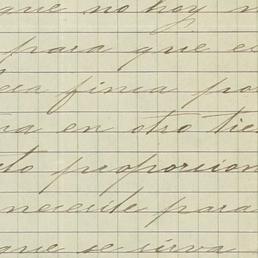 que no hoy
para que el
finca por
en otro tie
to proporcion
necesite para
que se sirva